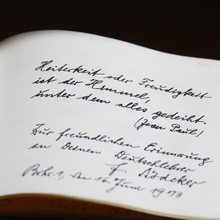 Heiterkeit oder Freudigkeit
ist der Himmel,
unter dem alles gedeiht.
(Jean Paul)
Zur freundlichen Erinnerung
an Deinen Deutschlehrer
F. Rödeker
1, den 15. Juni 1973